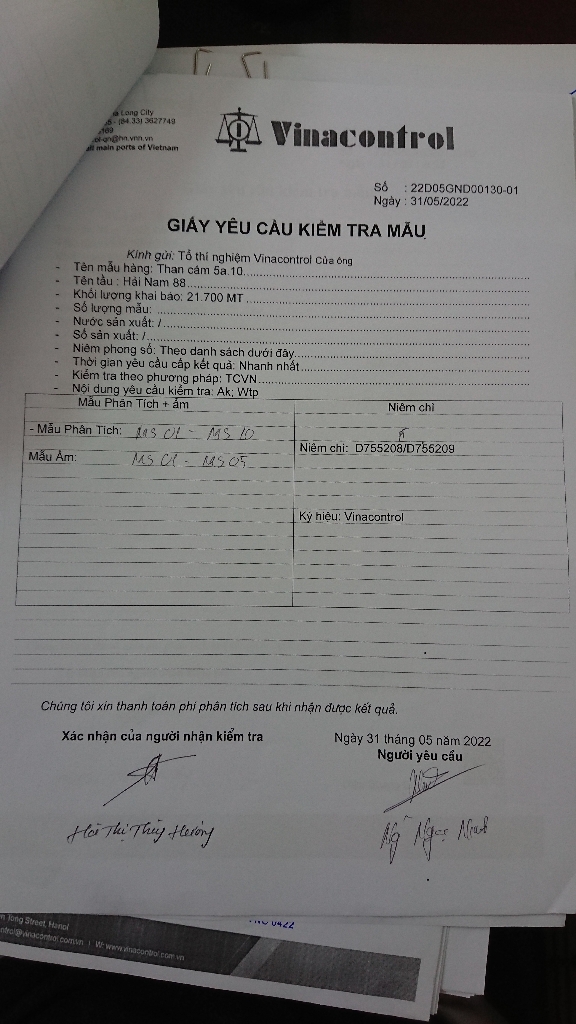 Long City
(84.33) 3627749
@hn.vnn.vn
main ports of Vietnam
Vinacontrol
Số : 22D05GND00130-01
Ngày : 31/05/2022
GIẤY YÊU CẦU KIỂM TRA MẪU
Kính gửi: Tổ thí nghiệm Vinacontrol Cửa ông
- Tên mẫu hàng: Than cám 5a.10
- Tên tàu : Hải Nam 88
- Khối lượng khai báo: 21.700 MT
- Số lượng mẫu:
- Nước sản xuất: /
- Số sản xuất: /
- Niêm phong số: Theo danh sách dưới đây
- Thời gian yêu cầu cấp kết quả: Nhanh nhất
- Kiểm tra theo phương pháp: TCVN
- Nội dung yêu cầu kiểm tra: Ak; Wtp
Mẫu Phân Tích + ẩm
Niêm chì
- Mẫu Phân Tích: MS 01 - MS 10
Niêm chì: D755208/D755209
Mẫu Ẩm: MS 01 - MS 05
Ký hiệu: Vinacontrol
Chúng tôi xin thanh toán phí phân tích sau khi nhận được kết quả.
Xác nhận của người nhận kiểm tra
Ngày 31 tháng 05 năm 2022
Người yêu cầu
Thị Thúy Hương
Ngọc
0422
Street, Hanoi
W: www.vinacontrol.com.vn